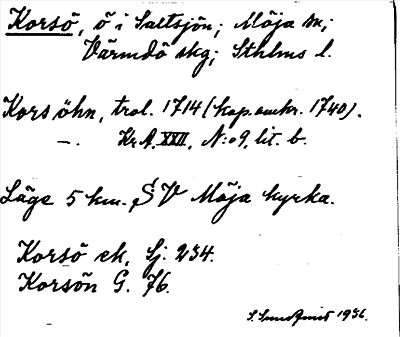 Korsö, ö i Saltsjön; Möja sn;
Värmdö skg; Sthlms l.
Korsöhn, trol. 1714 (kop. omkr. 1740).
—. KrA, XXII, N:o 9, lit. b.
Läge 5 km. SV Möja kyrka.
Korsö ek, Sj. 234.
Korsön G. 76.
S. Sundqvist 1936.